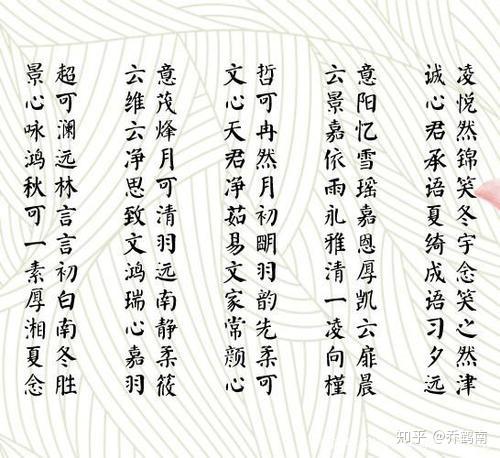 凌悦然锦笑冬宇念笑之然津
诚心君承语夏绮成语习夕远
意阳忆雪瑶嘉恩厚凯云扉晨
云景嘉依雨礼雅清一凌向槿
哲可冉然月初明羽韵先柔可
文心天君净茹易文家常颜心
意茂烽月可清羽远南静柔筱
云维云净思致文鸿瑞心嘉羽
超可澜远林言言初白南冬胜
景心咏鸿秋可一素厚湘夏念
知乎 @乔鹤南